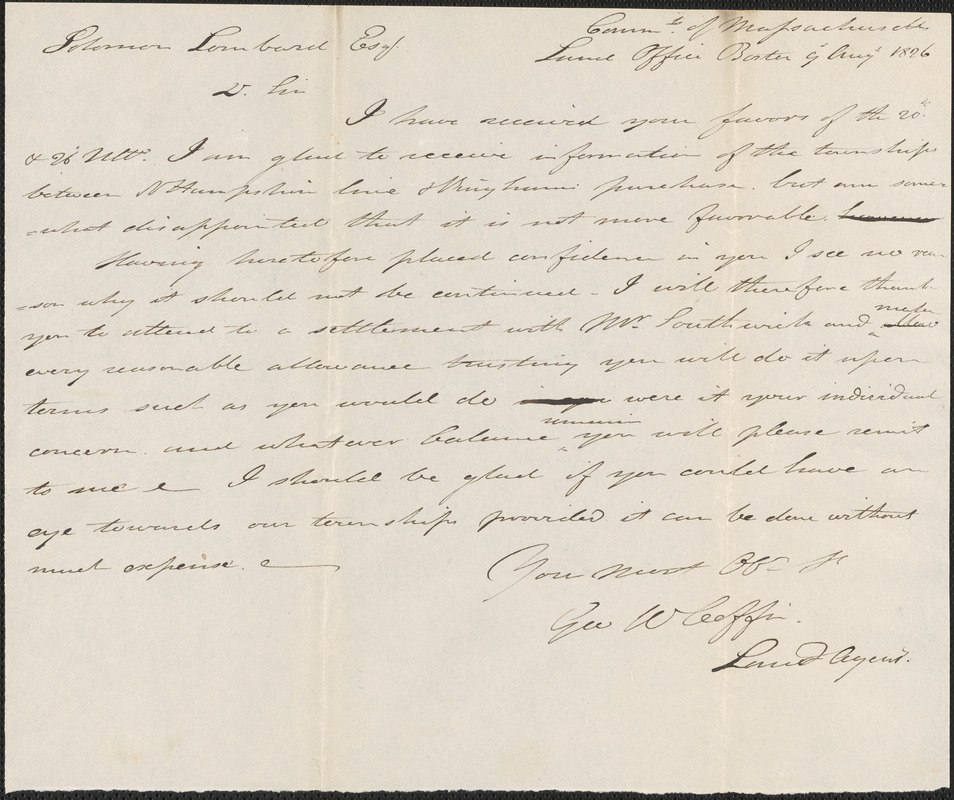 Comm.th of Massachusetts
Solomon Lombard Esq.
Land Office Boston 9 Augt 1826
D. Sir
I have received your favors of the 20th
& 26 Ulto. I am glad to receive information of the townships
between N Hampshire line & Binghams purchase. but am some
=what disappointed that it is not more favorable.
Having heretofore placed confidence in you I see no rea
=son why it should not be continued - I will therefore thank
you to attend to a settlement with Mr. Southwick and make
every reasonable allowance trusting you will do it upon
terms such as you would do were it your individual
concern. and whatever balance remain you will please remit
to me I should be glad if you could have an
eye towards our townships provided it can be done without
much expense.
Your most Obt St
Geo W Coffin.
Land Agent.